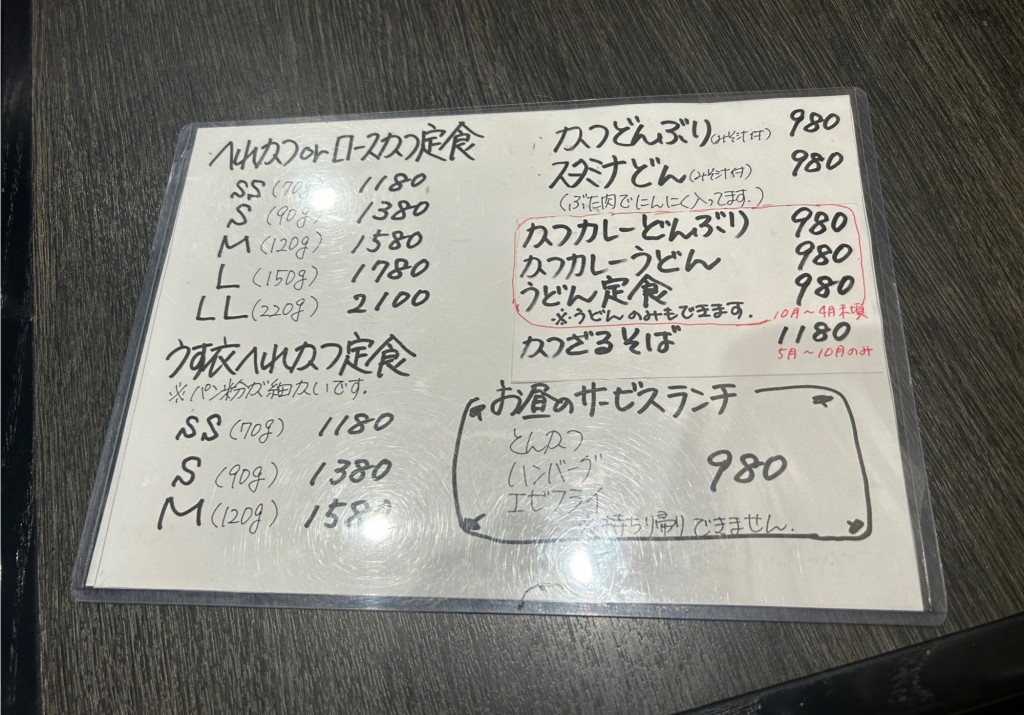 へれカツorロースカツ定食
SS(70g) 1180
S (90g) 1380
M (120g) 1580
L (150g) 1780
LL(220g) 2100
うす衣へれカツ定食
※パン粉が細かいです.
SS (70g) 1180
S (90g) 1380
M(120g) 1580
カツどんぶり(みそ汁付) 980
スタミナどん(みそ汁付) 980
(ぶた肉でにんにく入ってます.)
カツカレーどんぶり 980
カツカレーうどん 980
うどん定食 980
※うどんのみもできます. 10月〜4月末頃
カツざるそば 1180
5月〜10月のみ
お昼のサービスランチ
とんカツ
ハンバーグ 980
エビフライ
持ち帰りできません.